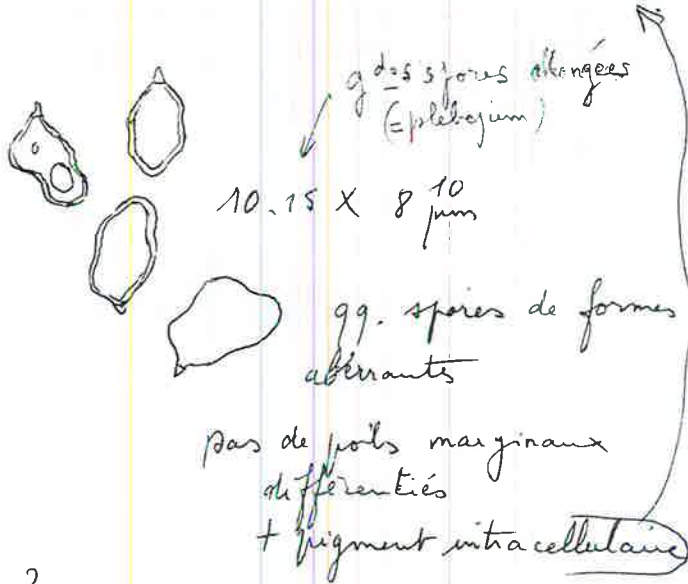 gdes spores allongées
(= plebejum)
10.15 X 8 10 µm
qq. spores de formes
aberrantes
pas de poils marginaux
différentiés
+ pigment intracellulaire
2